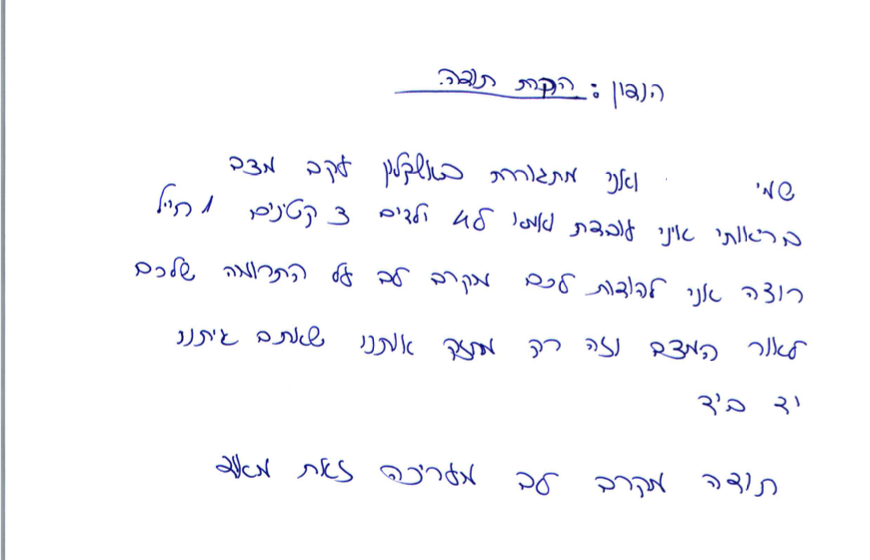 הנדון: הקרת תודה.
שמי ואני מתגוררת באשקלון עקב מצב
בריאותי איני עובדת ואמא ל4 ילדים 3 קטינים 1 חייל
רוצה אני להודות לכם מקרב לב על התרומה שלכם
לאור המצב וזה רק מחזק אותנו שאתם איתנו
יד ביד
תודה מקרב לב מעריכה זאת מאוד